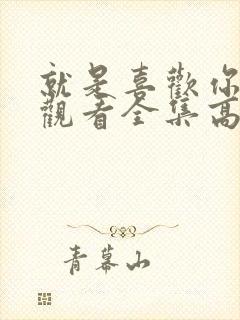 就是喜歡你
觀看全集高
青幕山